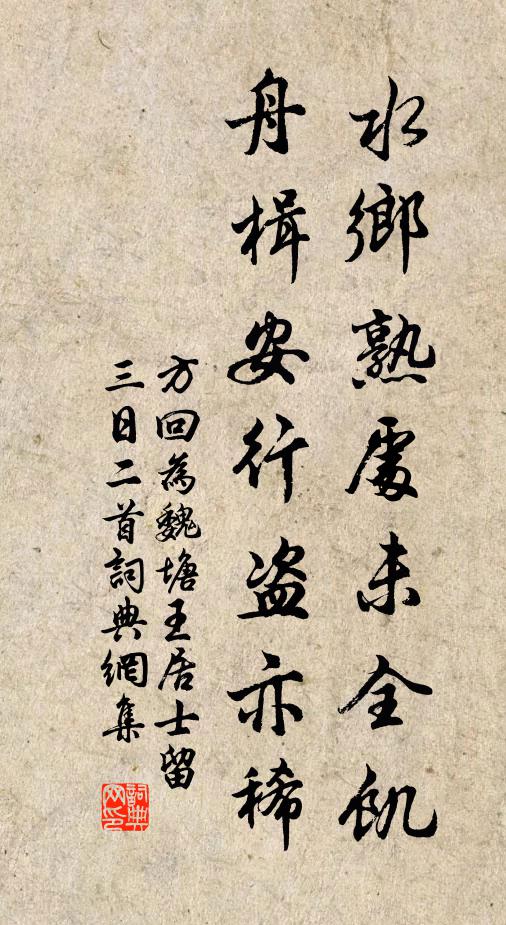 水鄉熟處未全飢
舟楫安行盜亦稀
方回為魏塘王居士留
三日二首詞典網集
詞典网印